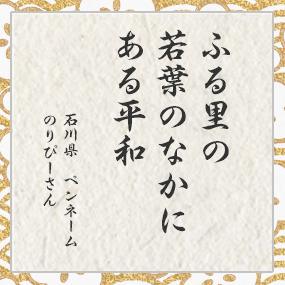 ふる里の
若葉のなかに
ある平和
石川県　ペンネーム
のりぴーさん